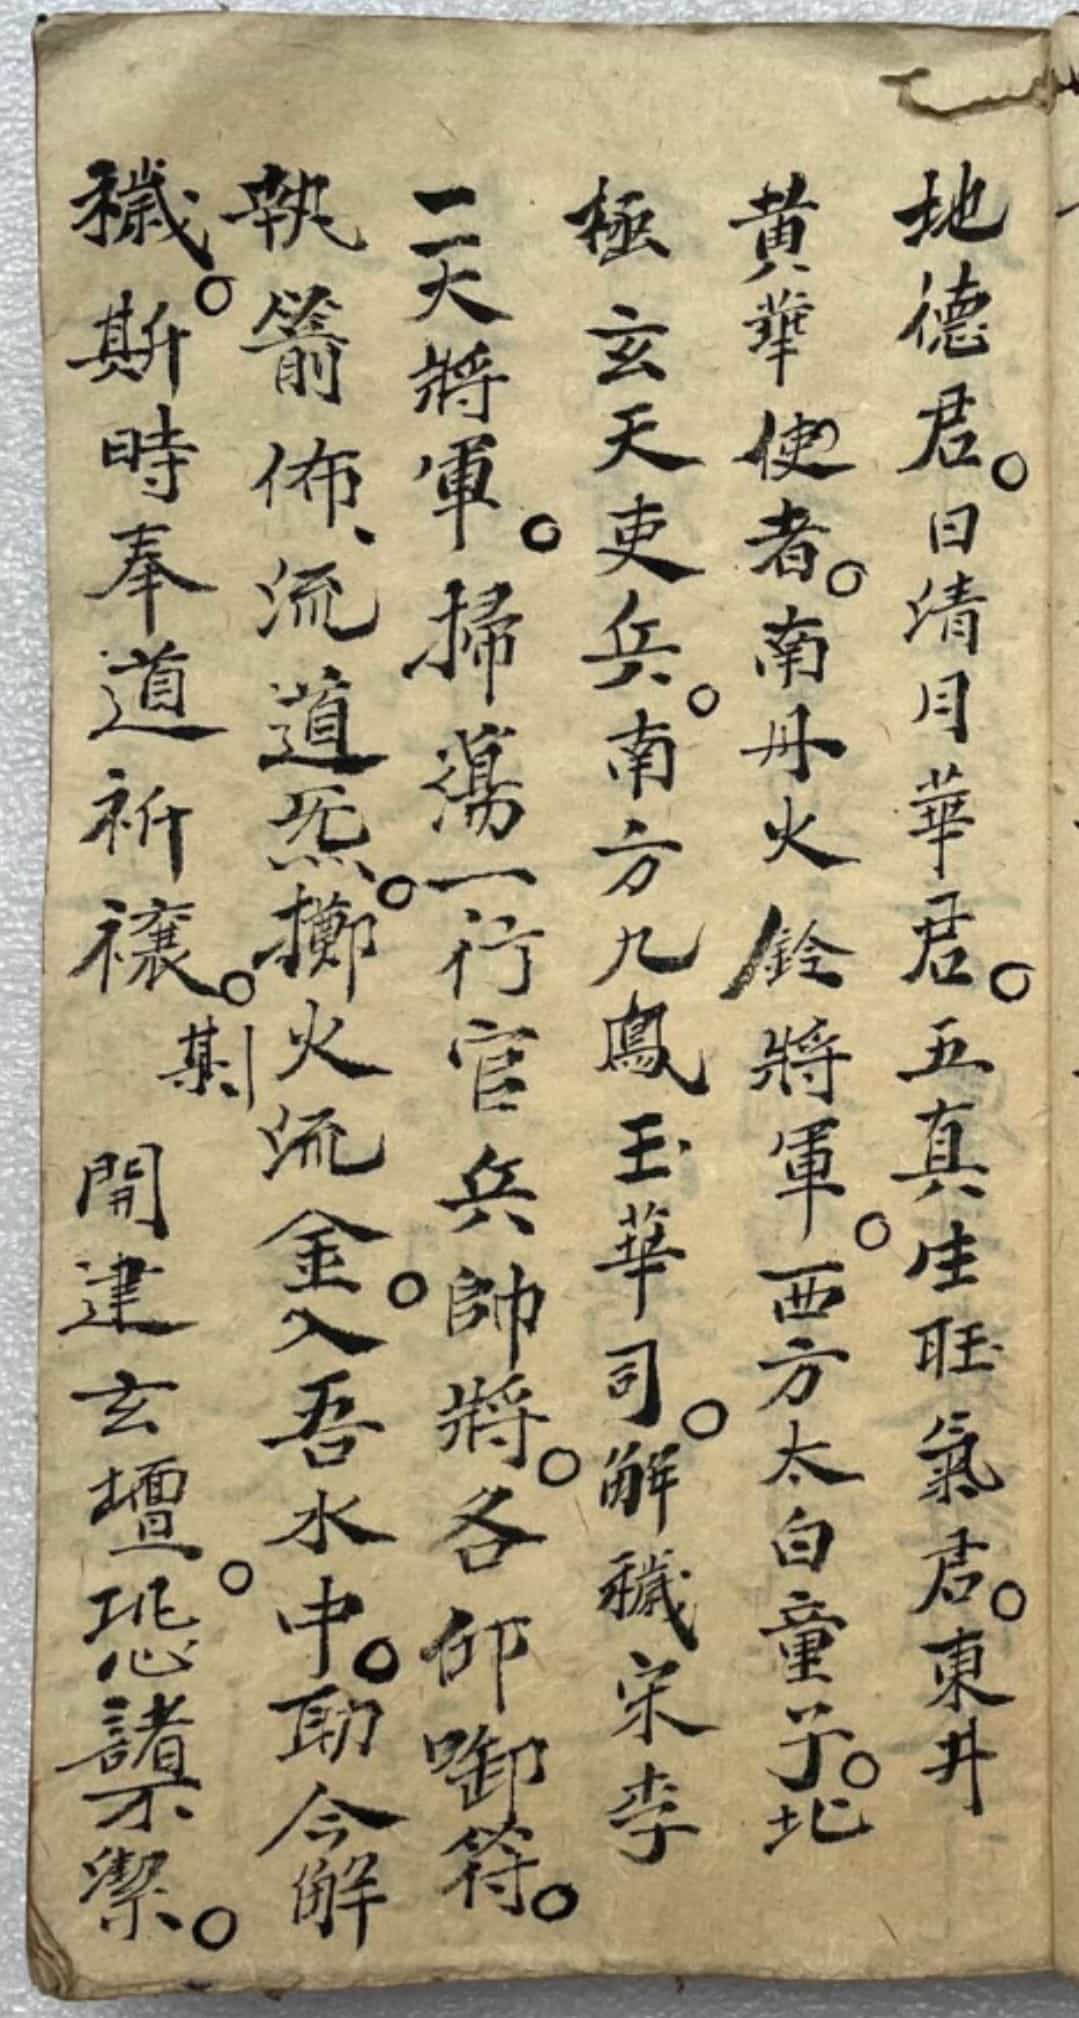 地德君。日清月華君。五真生旺氣君。東井
黄華使者。南丹火鈴將軍。西方太白童子。北
極玄天吏兵。南方九鳳玉華司。解穢宋李
二大將軍。掃蕩一行官兵帥將。各仰啣符。
執箭佈、流道炁。擲火流金。入吾水中。助令解
穢。斯時奉道祈禳。某則開建玄壇。恐諸不潔。